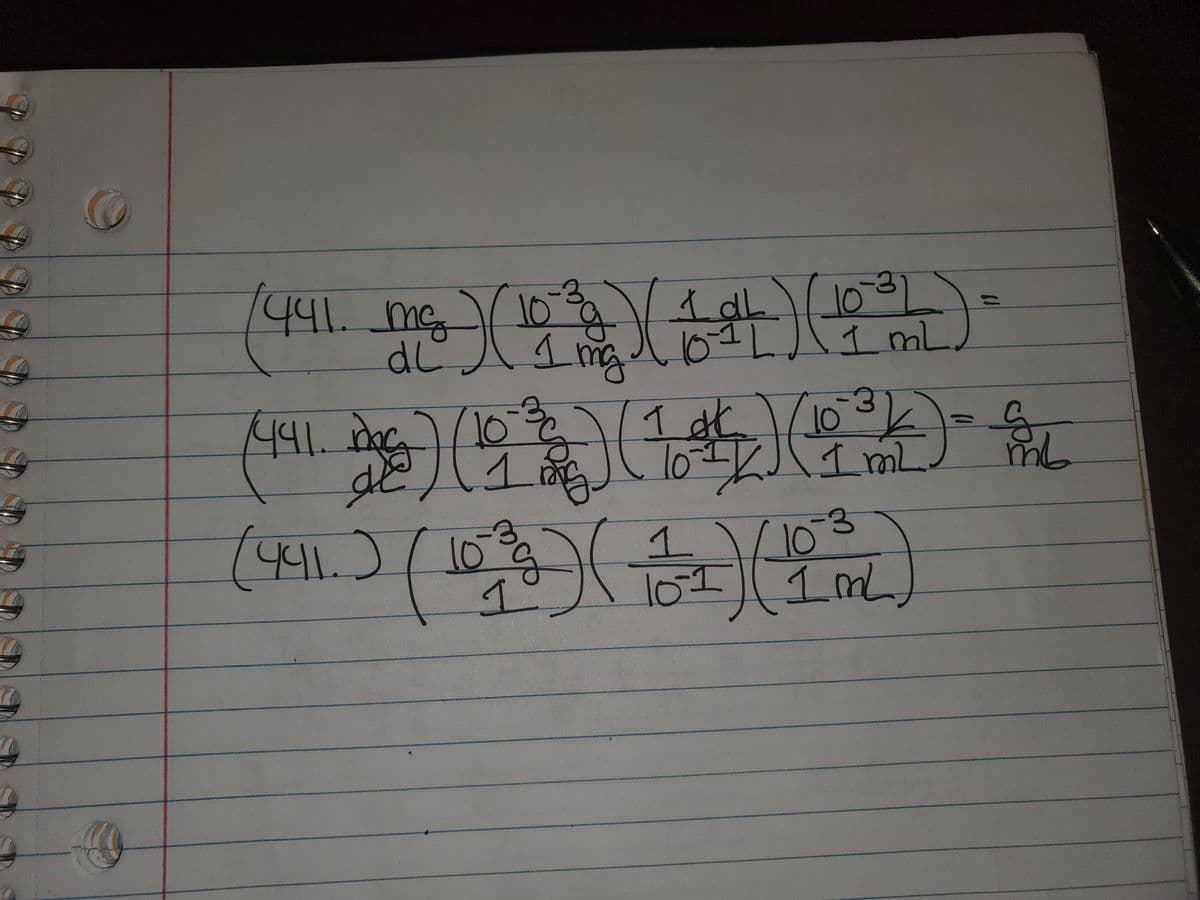 (441. mg/dL)(10⁻³g/1 mg)(1 dL/10⁻¹ L)(10⁻³L/1 mL)=
(441. mg/dL)(10⁻³g/1 mg)(1 dL/10⁻¹L)(10⁻³L/1 mL)= g/mL
(441.)(10⁻³g/1)(1/10⁻¹)(10⁻³/1 mL)